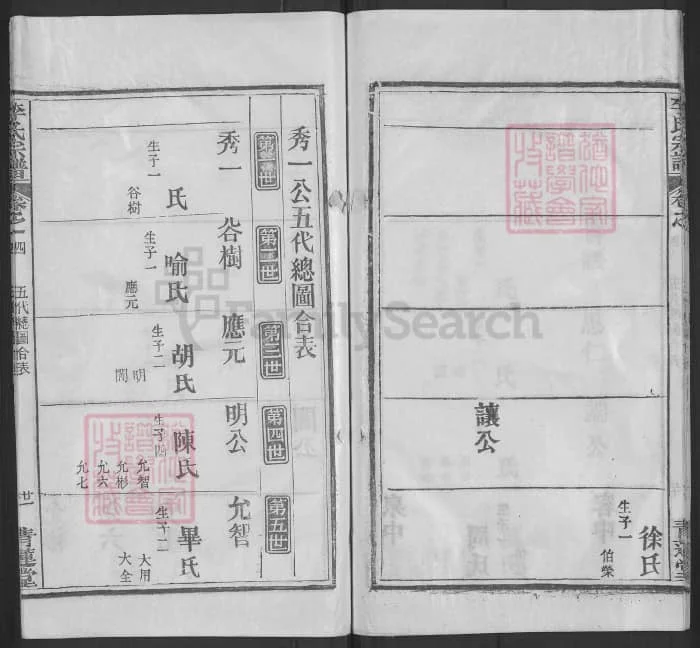 李氏宗譜
卷之一
讓公
徐氏
生子一
伯榮
青蓮堂
秀一公五代總圖合表
第一世
第二世
第三世
第四世
第五世
秀一
谷樹
應元
明公
允智
氏
生子一
谷樹
喻氏
生子一
應元
胡氏
生子二
明
閏
陳氏
生子四
允智
允彬
允六
允七
畢氏
生子二
大用
大全
李氏宗譜
卷之一
四
五代總圖合表
廿一
青蓮堂
FamilySearch